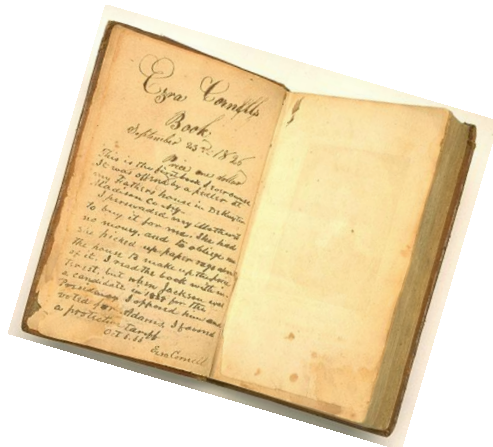 Ezra Cornell's
Book
September 23rd 1826
Price one dollar
This is the first book I ever owned
It was offered by a pedler at
my Father's house in DeRuyter
Madison Co NY.
I persuaded my Mother
to buy it for me. She had
no money, and to oblige me
she picked up paper rags about
the house to make up the price
of it. I read the book with in-
terest, but when Jackson was
a candidate in 1828 for the
Presidency I opposed him and
voted for Adams, I favored
a protection tariff
Ezra Cornell